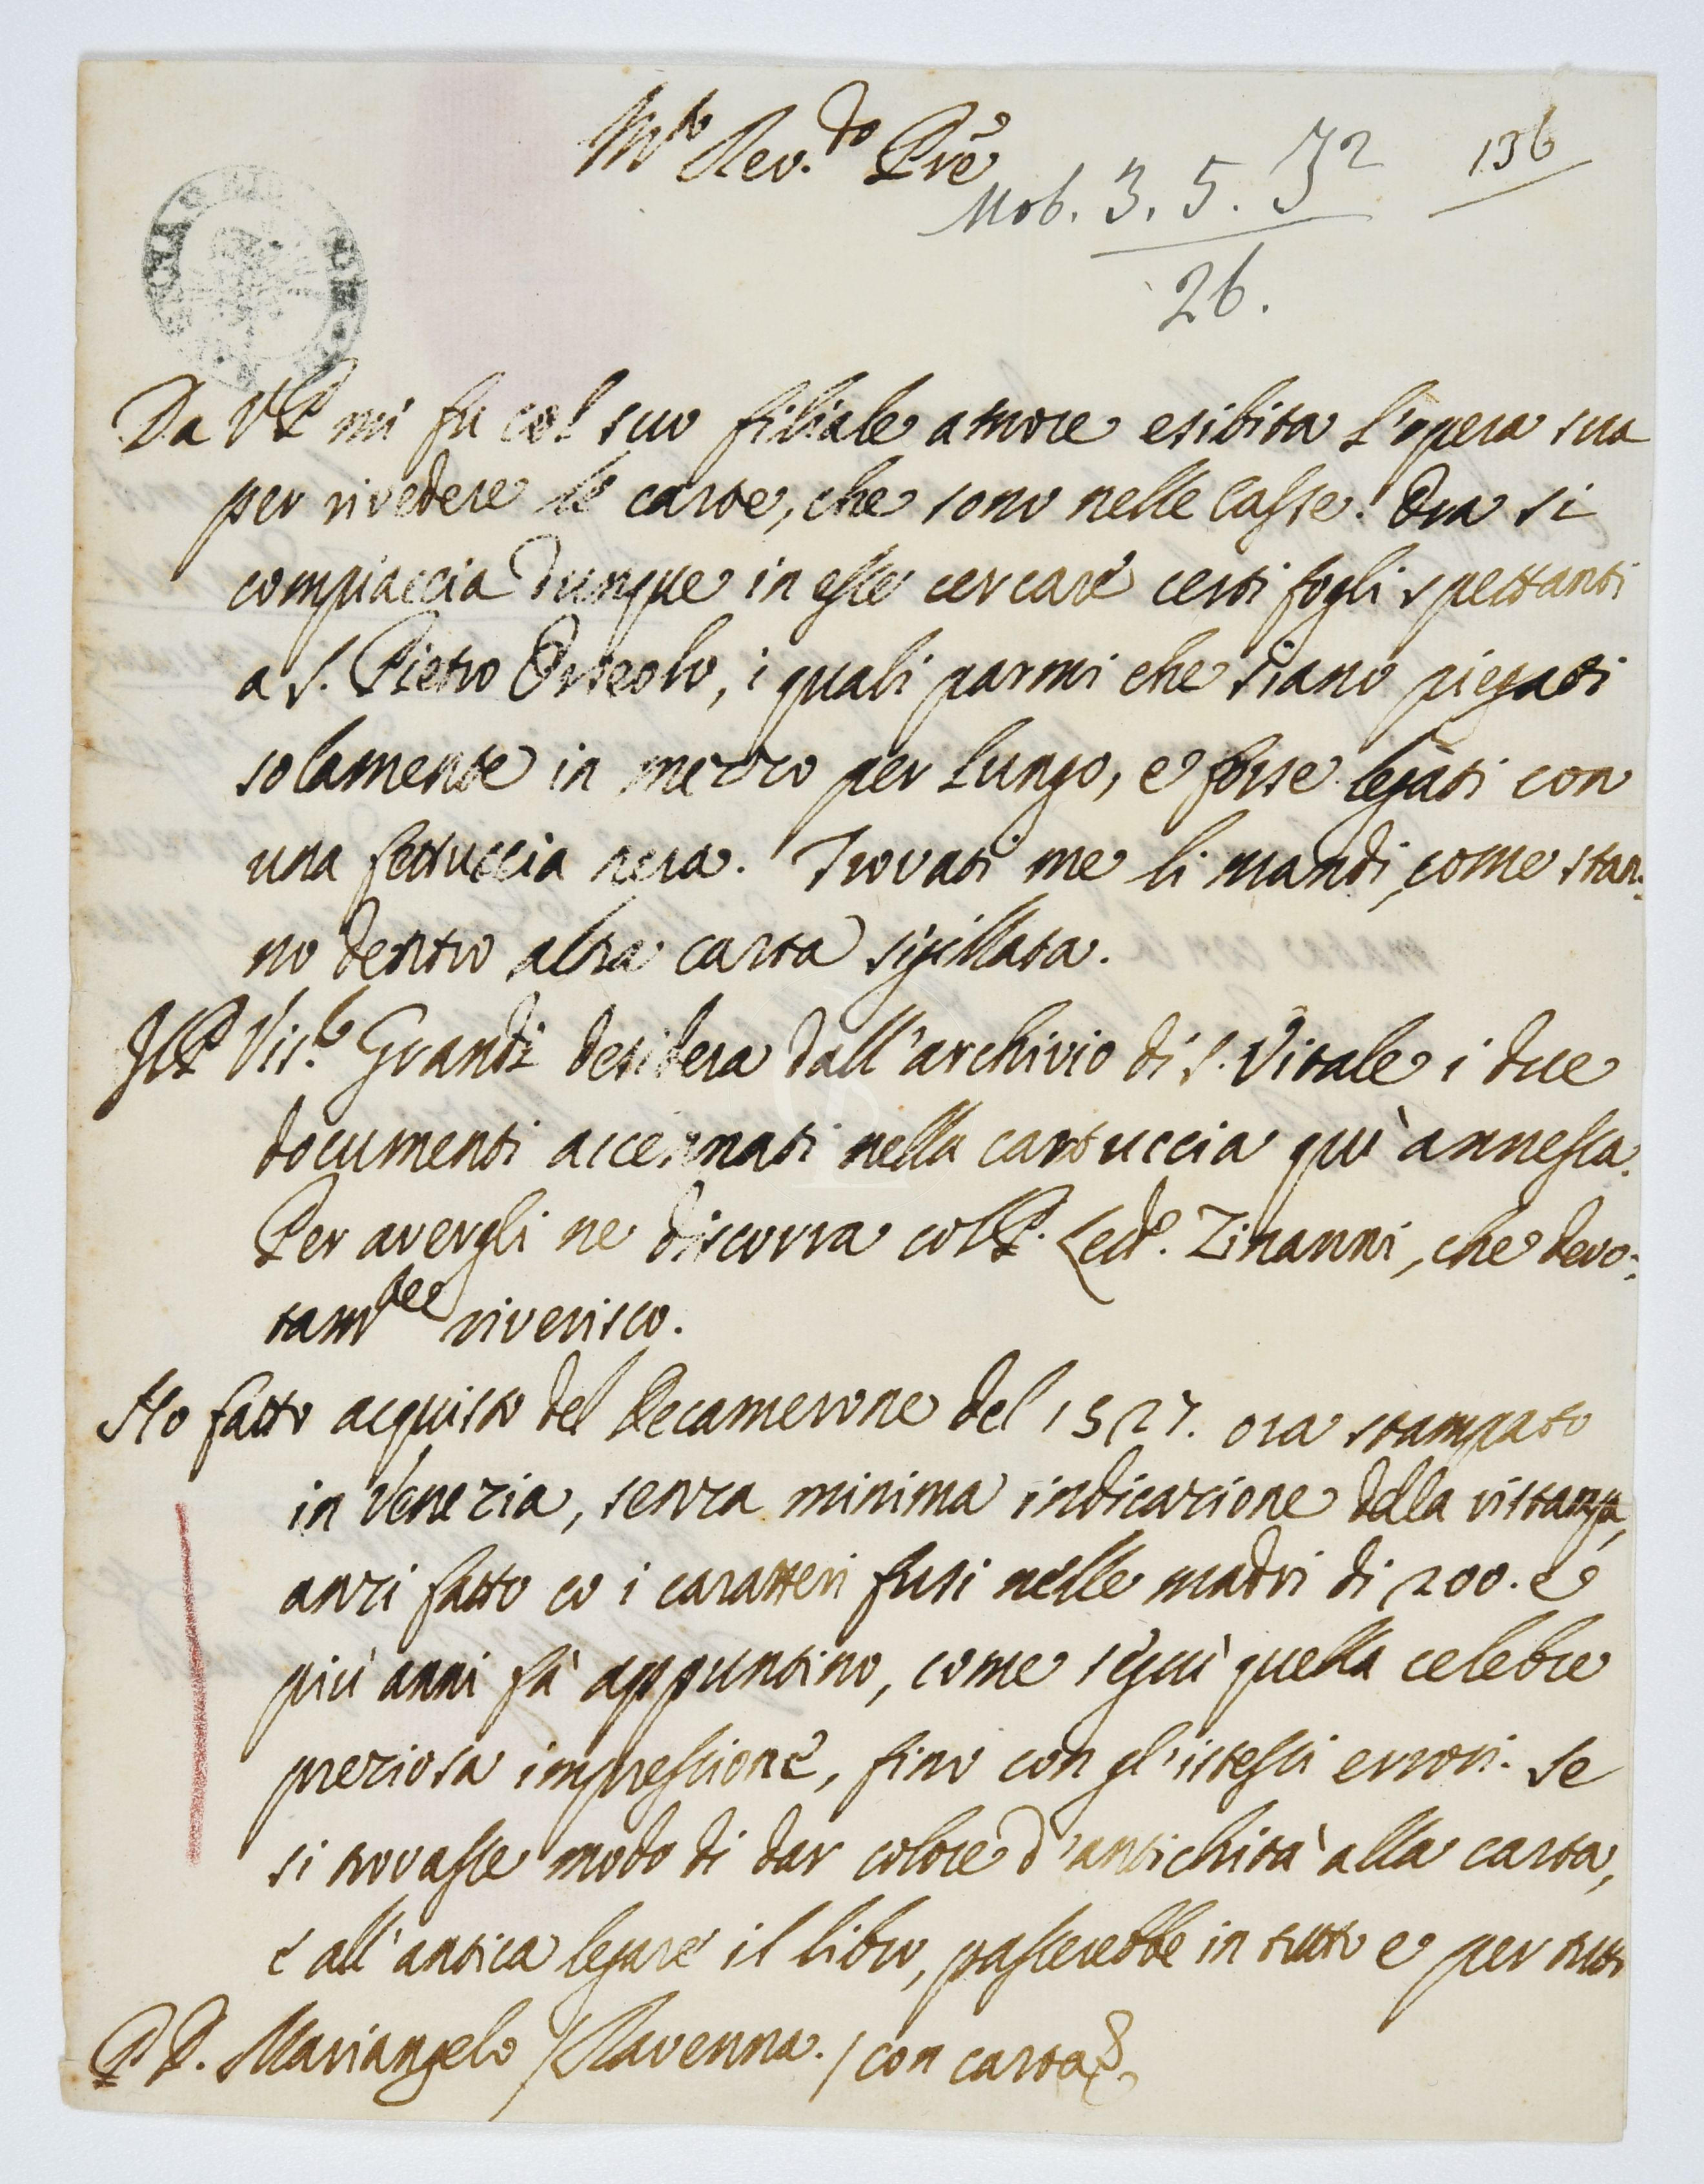 M.to Rev.do Pre
Mob. 3. 5. J2 136
26.
Da V.P. mi fu col suo filiale amore esibita l'opera sua
per rivedere le carte, che sono nelle Casse. Ora si
compiaccia dunque in esse cercare certi fogli spettanti
a S. Pietro Orseolo, i quali parmi che siano piegati
solamente in mezzo per lungo, e forse legati con
una fettuccia nera. Trovati me li mandi, come stan:
no dentro altra carta sigillata.
Il P. Vis.re Grandi desidera dall'archivio di S. Vitale i due
documenti accennati nella cartuccia quì annessa.
Per avergli ne discorra col P. Led.o Zinanni, che devo:
tam.te riverisco.
Ho fatto acquisto del Decamerone del 1527. ora stampato
in Venezia, senza minima indicazione della ristampa,
anzi fatto co i caratteri fusi nelle madri di 200. e
più anni fà appuntino, come seguì quella celebre
preziosa impressione, fino con gl'istessi errori. Se
si trovasse modo di dar colore d'antichità alla carta,
e all'antica legare il libro, passerebbe in tutto e per tutto
P. D. Mariangelo / Ravenna. / con carta